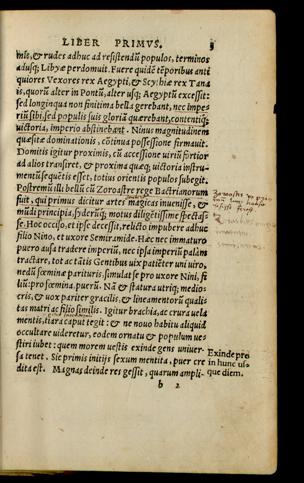 LIBER PRIMVS. 3
mis, & rudes adhuc ad resistendũ populos, terminos
adusq; Libyæ perdomuit. Fuere quidē tēporibus anti
quiores Vexores rex Aegypti, & Scythiæ rex Tana
is, quorũ alter in Pontũ, alter usq; Aegyptũ excessit:
sed longinqua non finitima bella gerebant, nec impe-
riũ sibi, sed populis suis gloriã quærebant, contentiq;
uictoria, imperio abstinebant. Ninus magnitudinem
quæsitæ dominationis, cõtinua possessione firmauit.
Domitis igitur proximis, cũ accessione uiriũ fortior
ad alios transiret, & proxima quæq; uictoria instru-
mentũ sequētis esset, totius orientis populos subegit.
Postremũ illi bellũ cũ Zoroastre rege Bactrianorum
fuit, qui primus dicitur artes magicas inuenisse, &
mũdi principia, syderũq; motus diligētissime spectas-
se. Hoc occiso, et ipse decessit, relicto impubere adhuc
filio Nino, et uxore Semiramide. Hæc nec immaturo
puero ausa tradere imperiũ, nec ipsa imperiũ palàm
tractare, tot ac tãtis Gentibus uix patiēter uni uiro,
nedũ fœminæ parituris, simulat se pro uxore Nini, fi
liũ: pro fœmina, puerũ. Nã & statura utriq; medio-
cris, & uox pariter gracilis, & lineamentorũ qualis
tas matri ac filio similis. Igitur brachia, ac crura uela
mentis, tiara caput tegit: & ne nouo habitu aliquid
occultare uideretur, eodem ornatu & populum ue-
stiri iubet: quem morem uestis exinde gens uniuer-
sa tenet. Sic primis initijs sexum mentita, puer cre
dita est. Magnas deinde res gessit, quarum ampli-
Exinde pro
in hunc us-
que diem.
b 2